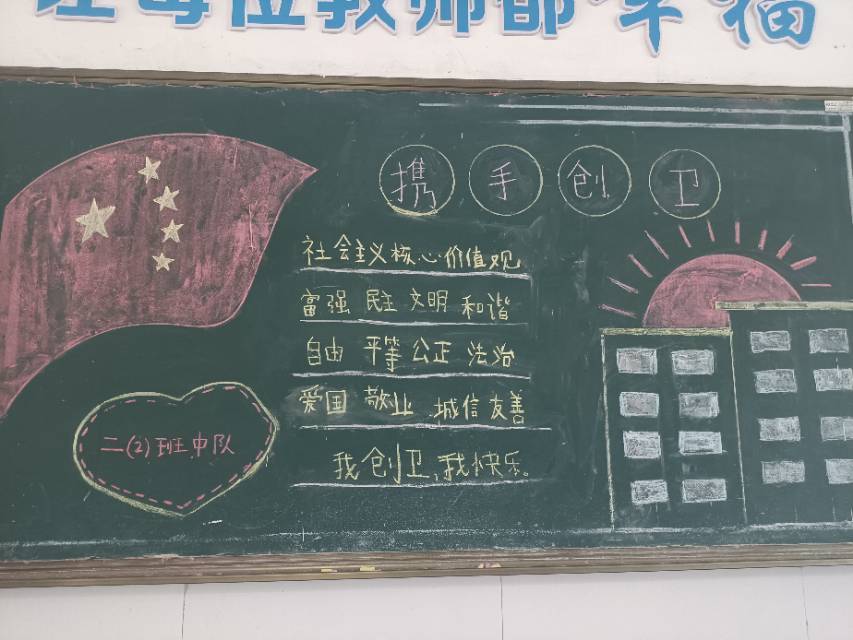 让每位教师都幸福
携手创卫
社会主义核心价值观
富强 民主 文明 和谐
自由 平等 公正 法治
爱国 敬业 诚信 友善
我创卫,我快乐。
二(2)班中队